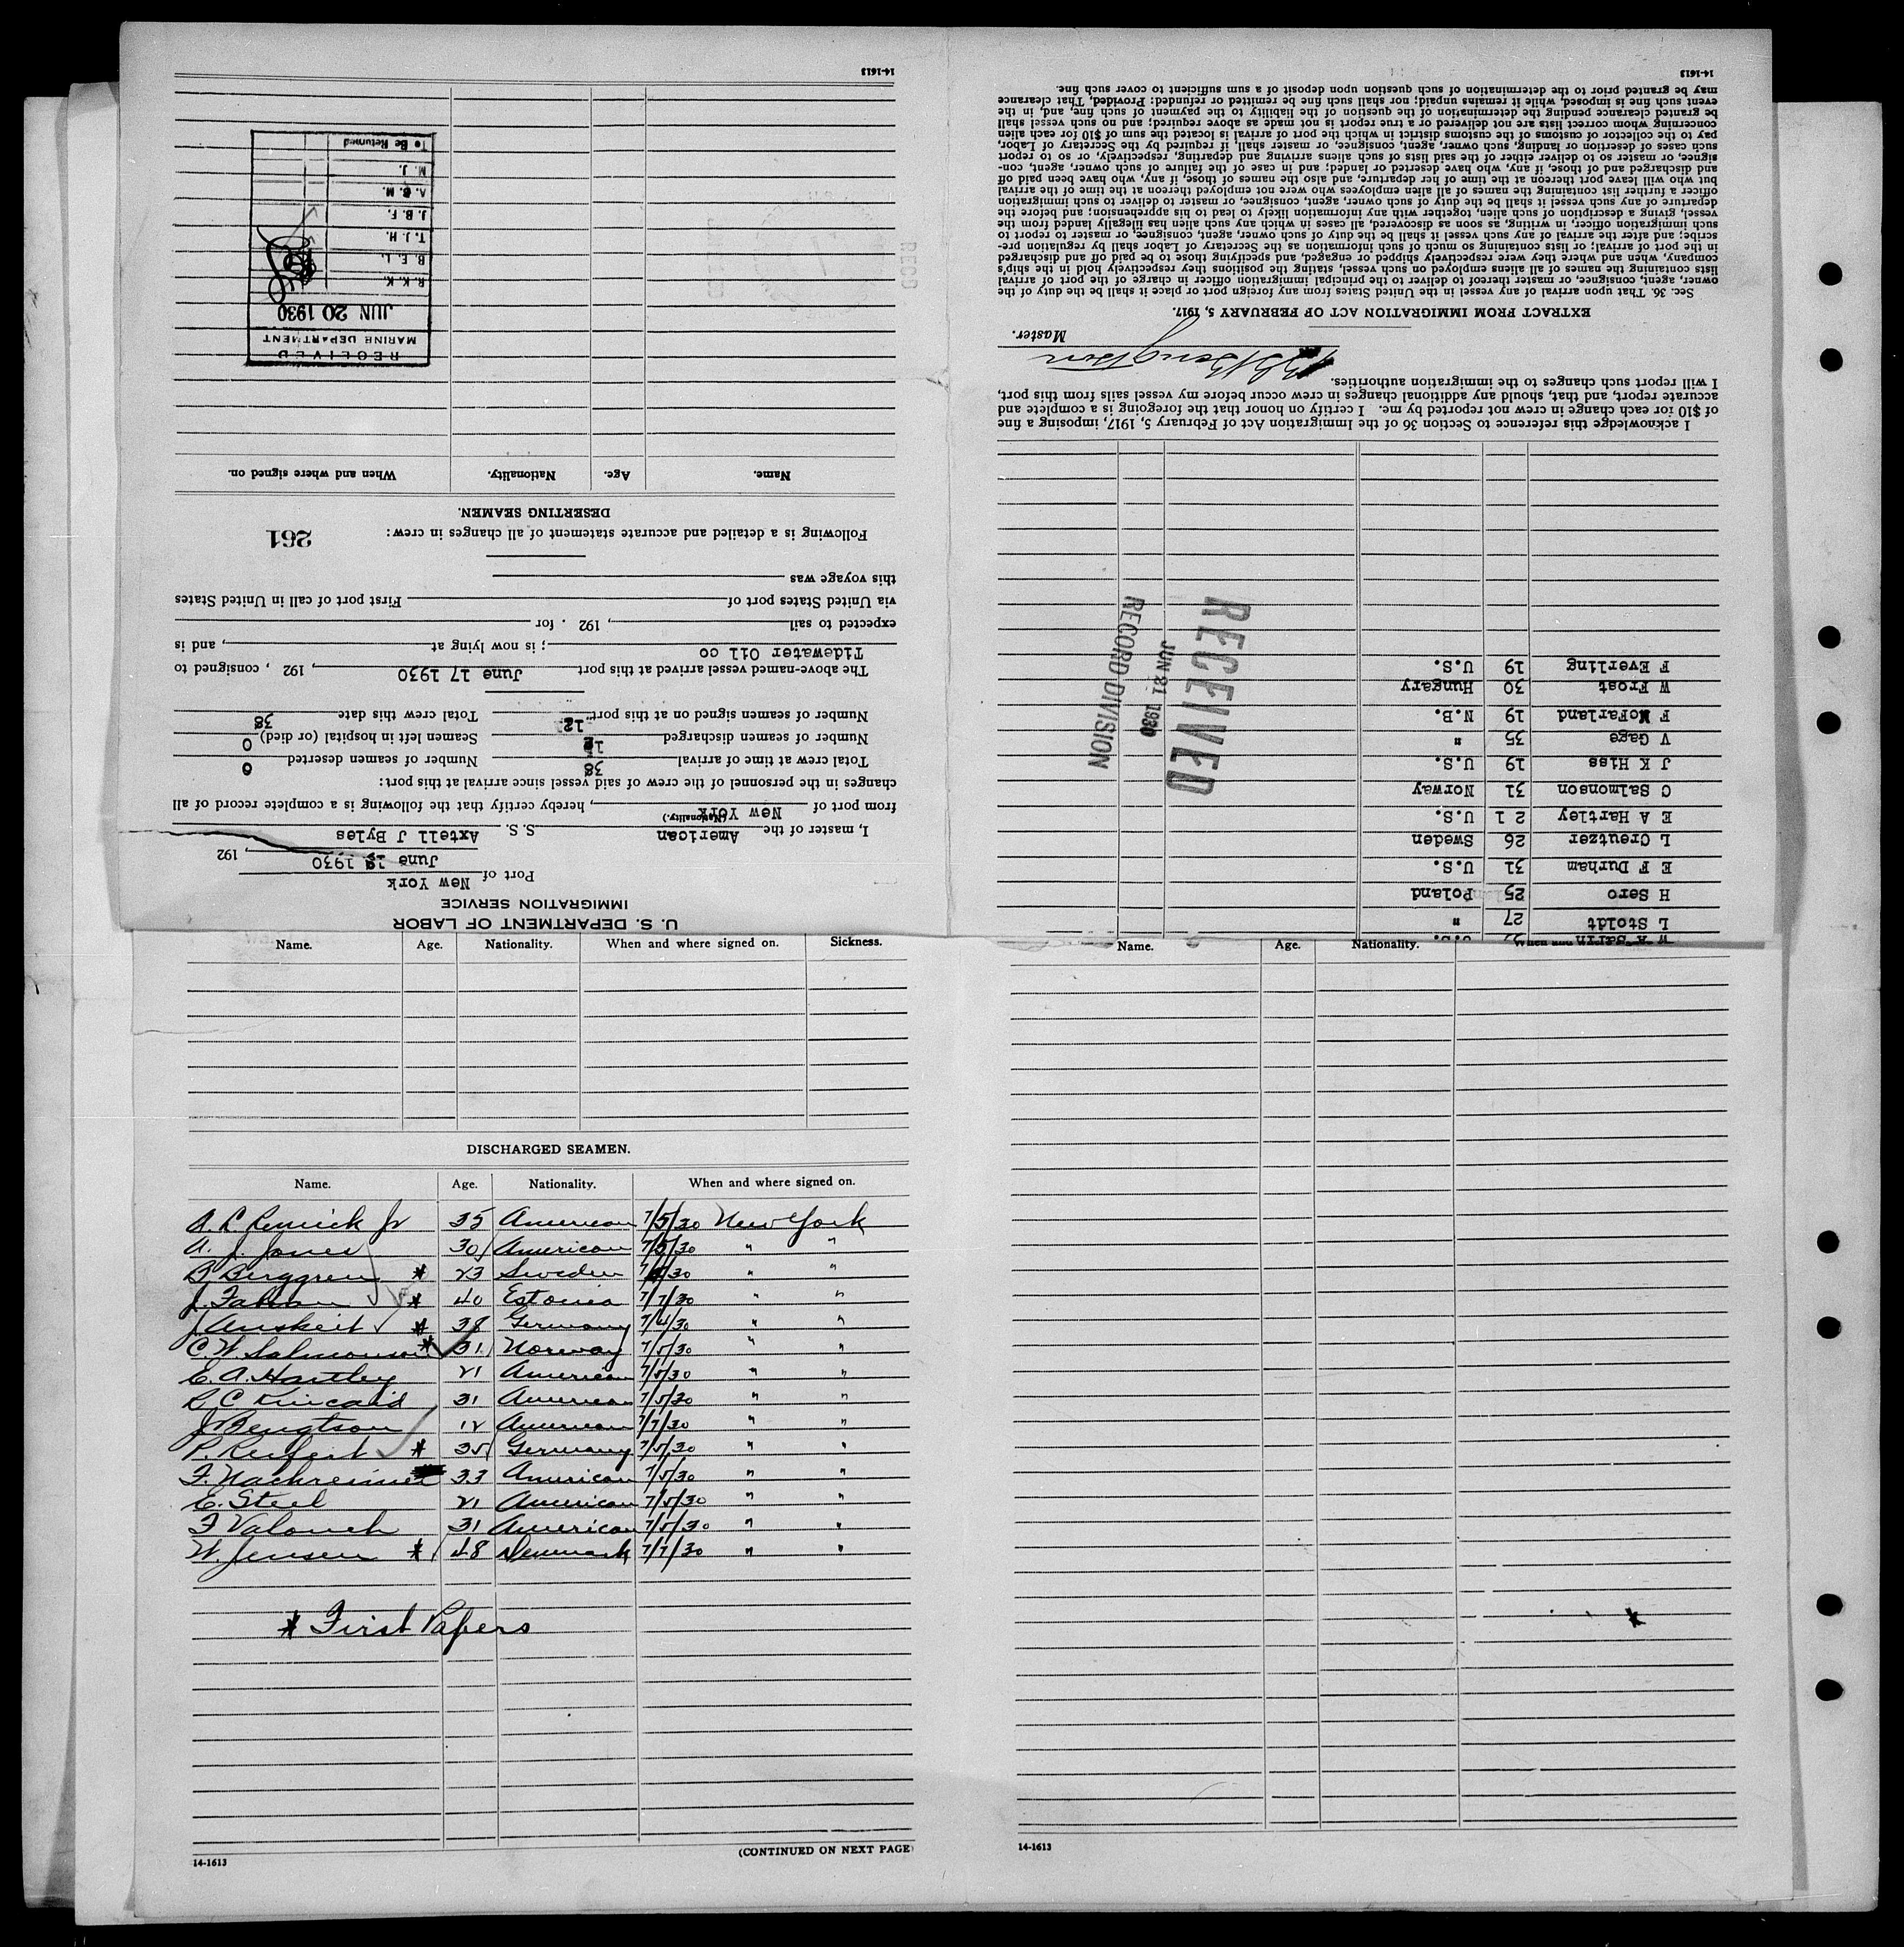 U. S. DEPARTMENT OF LABOR
IMMIGRATION SERVICE
Port of New York
June 19 1930, 192
I, master of the American S. S. Axtell J Byles
(Nationality.)
from port of New York, hereby certify that the following is a complete record of all
changes in the personnel of the crew of said vessel since arrival at this port:
Total crew at time of arrival 38 Number of seamen deserted 0
Number of seamen discharged 12 Seamen left in hospital (or died) 0
Number of seamen signed on at this port 12 Total crew this date 38
The above-named vessel arrived at this port June 17 1930, 192 , consigned to
Tidewater Oil co ; is now lying at , and is
expected to sail , 192 . for
via United States port of First port of call in United States
this voyage was
Following is a detailed and accurate statement of all changes in crew:
261
DESERTING SEAMEN.
Name. Age. Nationality. When and where signed on.
RECEIVED
MARINE DEPARTMENT
JUN 20 1930
R. K. K.
B. E. L.
T. J. H.
J. B. F.
A. C. M.
M. J.
To Be Returned
14-1613
L Stoldt 27 "
H Sero 25 Poland
E F Durham 31 U.S.
L Creutzer 26 Sweden
E A Hartley 21 U.S.
C Salmonson 31 Norway
J K Hiss 19 U.S.
V Gage 35 "
F McFarland 19 N.B.
W Frost 30 Hungary
F Everling 19 U.S.
RECEIVED
JUN 21 1930
RECORD DIVISION
I acknowledge this reference to Section 36 of the Immigration Act of February 5, 1917, imposing a fine
of $10 for each change in crew not reported by me. I certify on honor that the foregoing is a complete and
accurate report, and that, should any additional changes in crew occur before my vessel sails from this port,
I will report such changes to the immigration authorities.
Master.
EXTRACT FROM IMMIGRATION ACT OF FEBRUARY 5, 1917.
Sec. 36. That upon arrival of any vessel in the United States from any foreign port or place it shall be the duty of the
owner, agent, consignee, or master thereof to deliver to the principal immigration officer in charge of the port of arrival
lists containing the names of all aliens employed on such vessel, stating the positions they respectively hold in the ship's
company, when and where they were respectively shipped or engaged, and specifying those to be paid off and discharged
in the port of arrival; or lists containing so much of such information as the Secretary of Labor shall by regulation pre-
scribe; and after the arrival of any such vessel it shall be the duty of such owner, agent, consignee, or master to report to
such immigration officer, in writing, as soon as discovered, all cases in which any such alien has illegally landed from the
vessel, giving a description of such alien, together with any information likely to lead to his apprehension; and before the
departure of any such vessel it shall be the duty of such owner, agent, consignee, or master to deliver to such immigration
officer a further list containing the names of all alien employees who were not employed thereon at the time of the arrival
but who will leave port thereon at the time of her departure, and also the names of those, if any, who have been paid off
and discharged and of those, if any, who have deserted or landed; and in case of the failure of such owner, agent, con-
signee, or master so to deliver either of the said lists of such aliens arriving and departing, respectively, or so to report
such cases of desertion or landing, such owner, agent, consignee, or master shall, if required by the Secretary of Labor,
pay to the collector of customs of the customs district in which the port of arrival is located the sum of $10 for each alien
concerning whom correct lists are not delivered or a true report is not made as above required; and no such vessel shall
be granted clearance pending the determination of the question of the liability to the payment of such fine, and, in the
event such fine is imposed, while it remains unpaid; nor shall such fine be remitted or refunded: Provided, That clearance
may be granted prior to the determination of such question upon deposit of a sum sufficient to cover such fine.
14-1613
Name. Age. Nationality. When and where signed on. Sickness.
DISCHARGED SEAMEN.
Name. Age. Nationality. When and where signed on.
35 American 7/5/30 New York
A. J. Jones 30 American 7/5/30 " "
B. Berggren * 23 Sweden 30 " "
* 40 Estonia 7/7/30 " "
J. Anskeit * 38 Germany 7/4/30 " "
C. W. Salmonson * 31 Norway 7/5/30 " "
E. A. Hartley 21 American 7/5/30 " "
R C Kincaid 31 American 7/5/30 " "
J Bengtson American 7/7/30 " "
P. Reifert * 35 Germany 7/5/30 " "
F. Nachreiner 33 American 7/5/30 " "
E. Steel 21 American 7/5/30 " "
F Valouch 31 American 7/5/30 " "
W. Jensen * 48 Denmark 7/7/30 " "
* First Papers
(CONTINUED ON NEXT PAGE)
14-1613
Name. Age. Nationality.
*
14-1613